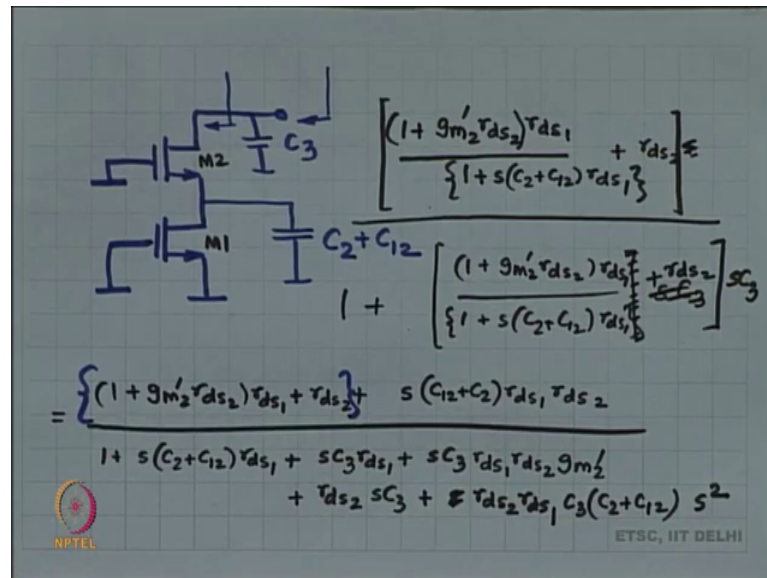 M2
C3
M1
C2+C12
[(1 + gm'2 rds2) rds1 / {1 + s(C2+C12) rds1} + rds2]
1 + [(1 + gm'2 rds2) rds1 / {1 + s(C2+C12) rds1} + rds2] sC3
= {(1 + gm'2 rds2) rds1 + rds2} + s(C12+C2) rds1 rds2
1 + s(C2+C12) rds1 + sC3 rds1 + sC3 rds1 rds2 gm'2
+ rds2 sC3 + rds2 rds1 C3(C2+C12) s²
NPTEL
ETSC, IIT DELHI